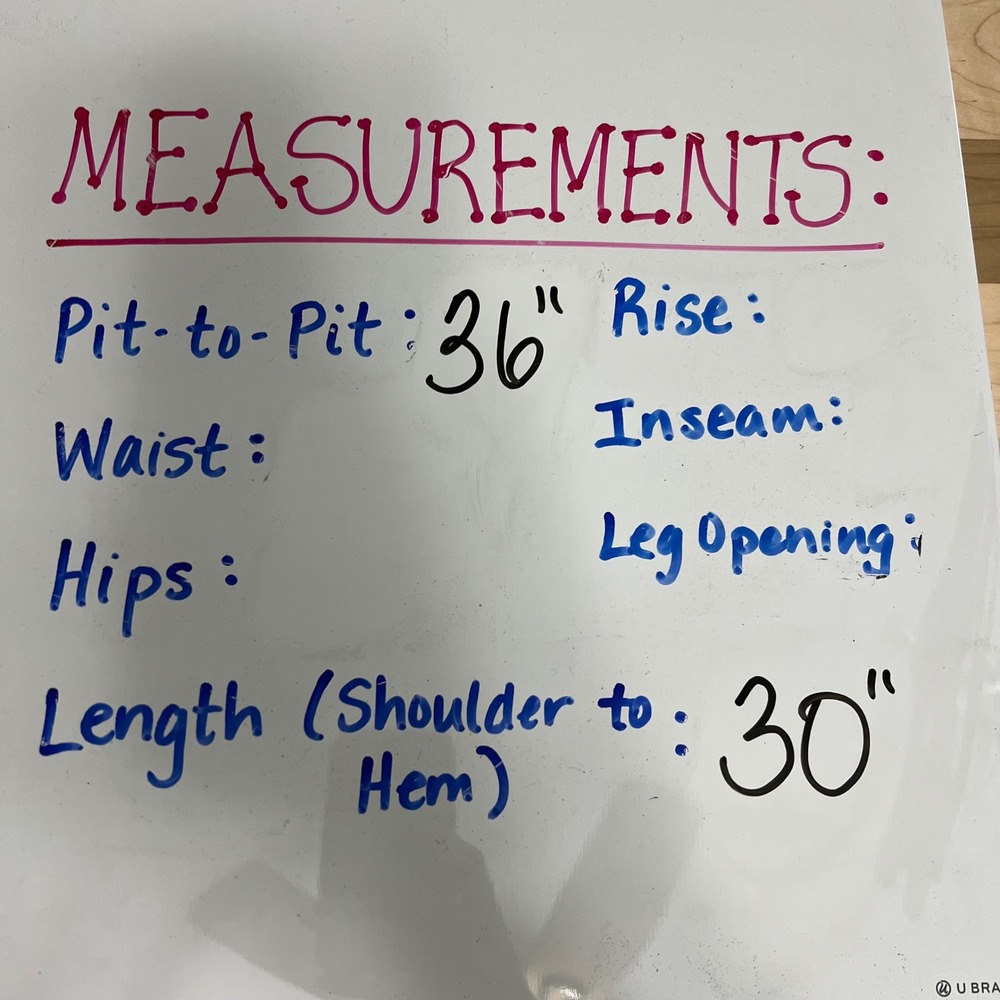 MEASUREMENTS:
Pit-to-Pit: 36"
Waist:
Hips:
Rise:
Inseam:
Leg Opening:
Length (Shoulder to: 30"
Hem)
U BRA